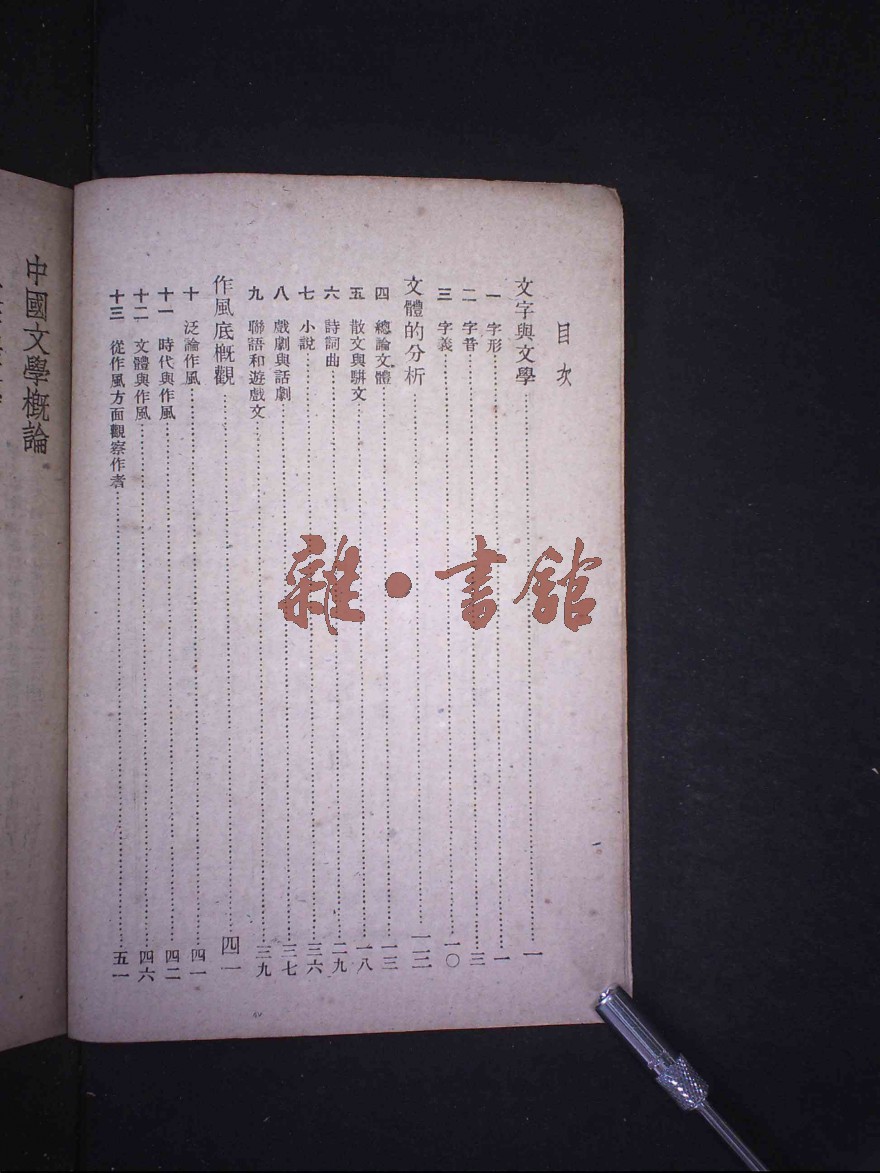 目次
文字與文學……………………一
一 字形……………………一
二 字音……………………三
三 字義……………………一〇
文體的分析……………………一三
四 總論文體……………………一三
五 散文與駢文……………………一八
六 詩詞曲……………………二九
七 小說……………………三六
八 戲劇與話劇……………………三七
九 聯語和遊戲文……………………三九
作風底概觀……………………四一
十 泛論作風……………………四一
十一 時代與作風……………………四二
十二 文體與作風……………………四六
十三 從作風方面觀察作者……………………五一
中國文學概論
雜·書館